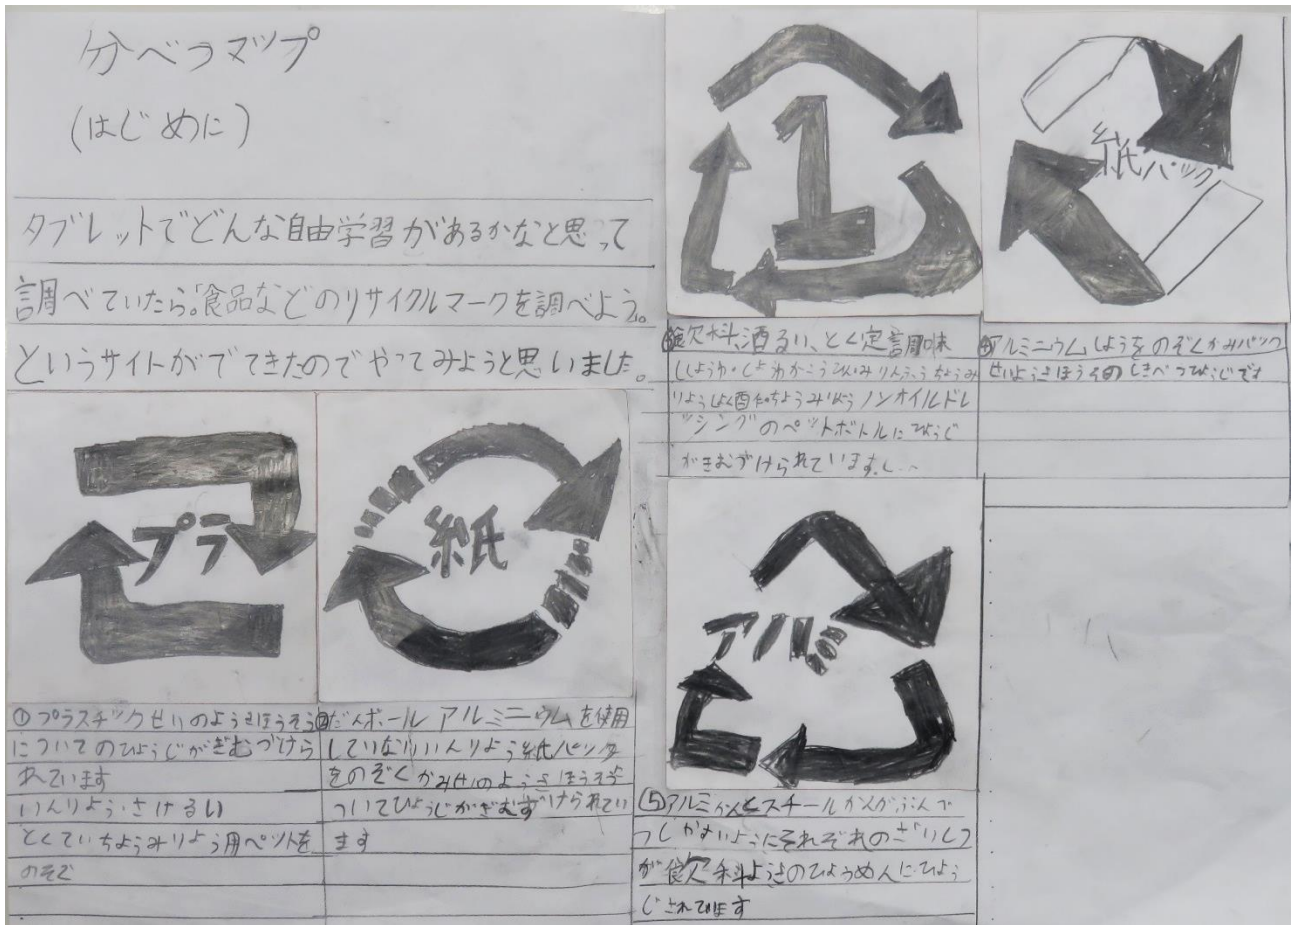 分べつマップ
(はじめに)
タブレットでどんな自由学習があるかなと思って
調べていたら。「食品などのリサイクルマークを調べよう。
というサイトがでてきたのでやってみようと思いました。
プラ
①プラスチックせいのようきほうそう
についてのひょうじがぎむづけら
れています
いんりょう・さけるい
とくていちょうみりょう用ペットを
のぞく
紙
②だんボール アルミニウムを使用
していないいんりよう紙パック
をのぞくかみせいのようきほうそうに
ついてひょうじがぎむずけられてい
ます
1
③飲料、酒るい、とく定調味
ノンオイルドレ
ッシングのペットボトルにひょうじ
がぎむづけられています。
紙パック
④アルミニウムしようをのぞくかみパック
せいようきほうそうのしきべつひょうじです
アルミ
⑤アルミかんとスチールかんがぶんべ
つしやすいようにそれぞれのざいしつ
が飲料ようきのひょうめんにひょう
じされてます